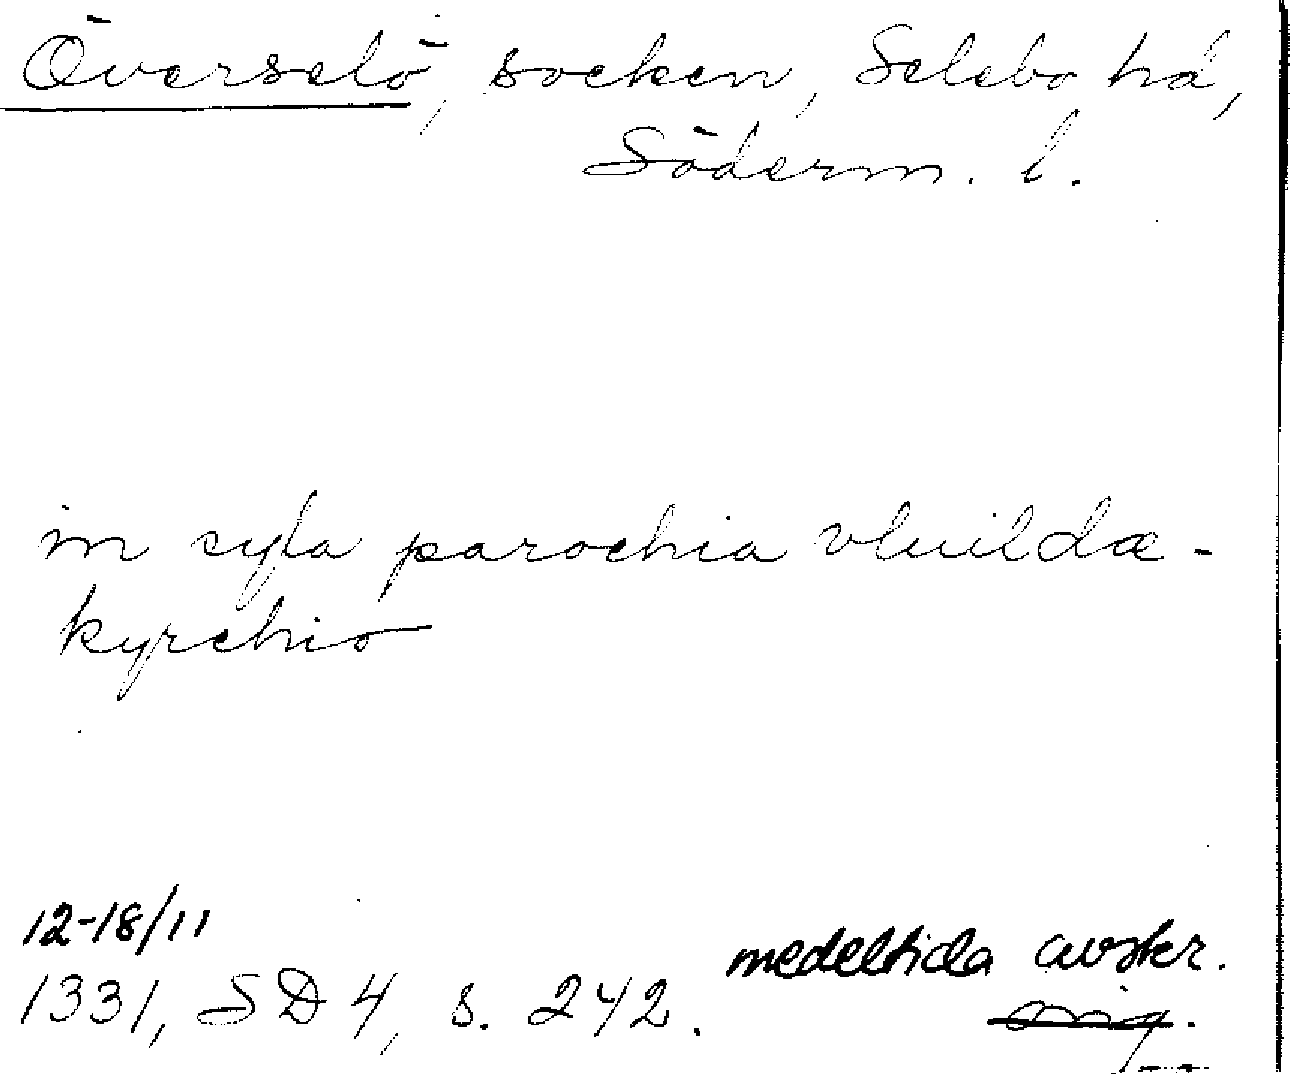 Överselö, socken, Selebo hd,
Söderm. l.
in syla parochia vluildæ-
kyrchio
12-18/11
medeltida avskr.
1331, SD 4, s. 242.
orig.